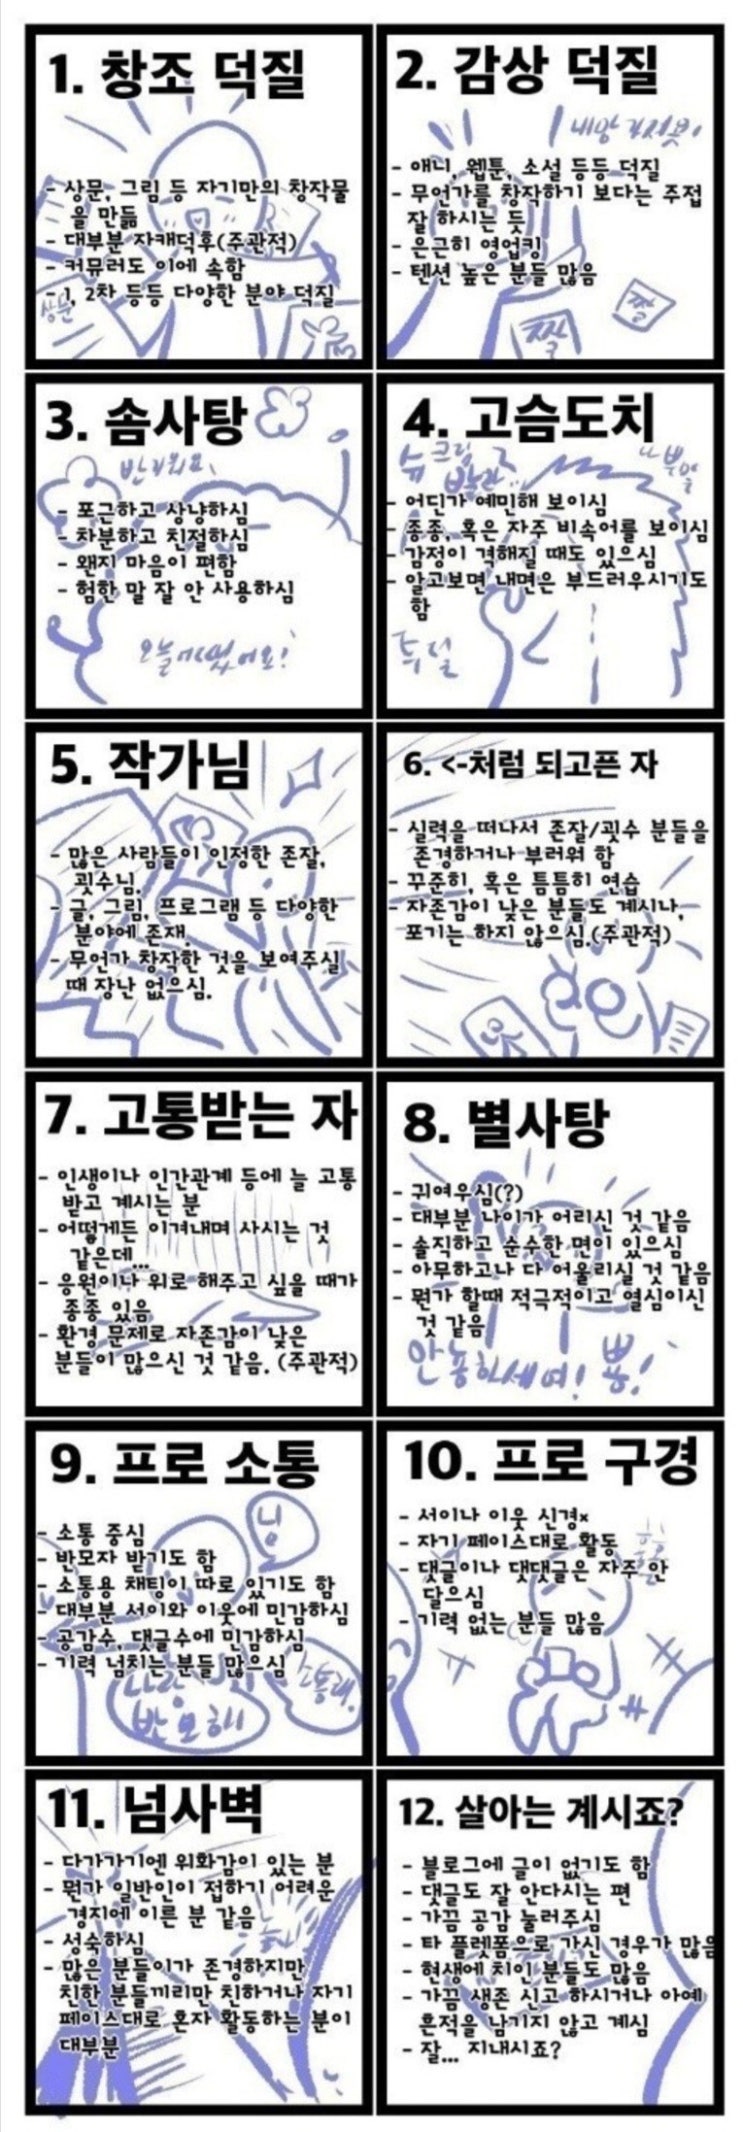 1. 창조 덕질
- 상문, 그림 등 자기만의 창작물
을 만듦
- 대부분 자캐덕후(주관적)
- 커뮤러도 이에 속함
- 1, 2차 등등 다양한 분야 덕질
상문
2. 감상 덕질
- 애니, 웹툰, 소설 등등 덕질
- 무언가를 창작하기 보다는 주접
잘 하시는 듯
- 은근히 영업킹
- 텐션 높은 분들 많음
짤
짤
3. 솜사탕
반가워요
- 포근하고 상냥하심
- 차분하고 친절하심
- 왠지 마음이 편함
- 험한 말 잘 안 사용하심
4. 고슴도치
슈크림
- 어딘가 예민해 보이심
- 종종, 혹은 자주 비속어를 보이심
- 감정이 격해질 때도 있으심
- 알고보면 내면은 부드러우시기도
함
5. 작가님
- 많은 사람들이 인정한 존잘,
굇수님.
- 글, 그림, 프로그램 등 다양한
분야에 존재.
- 무언가 창작한 것을 보여주실
때 장난 없으심.
6. <-처럼 되고픈 자
- 실력을 떠나서 존잘/굇수 분들을
존경하거나 부러워 함
- 꾸준히, 혹은 틈틈히 연습
- 자존감이 낮은 분들도 계시나,
포기는 하지 않으심.(주관적)
7. 고통받는 자
- 인생이나 인간관계 등에 늘 고통
받고 계시는 분
- 어떻게든 이겨내며 사시는 것
같은데...
- 응원이나 위로 해주고 싶을 때가
종종 있음
- 환경 문제로 자존감이 낮은
분들이 많으신 것 같음. (주관적)
8. 별사탕
- 귀여우심(?)
- 대부분 나이가 어리신 것 같음
- 솔직하고 순수한 면이 있으심
- 아무하고나 다 어울리실 것 같음
- 뭔가 할때 적극적이고 열심이신
것 같음
안뇽하세여! 뿅!
9. 프로 소통
- 소통 중심
- 반모자 받기도 함
- 소통용 채팅이 따로 있기도 함
- 대부분 서이와 이웃에 민감하심
- 공감수, 댓글수에 민감하심
- 기력 넘치는 분들 많으심
반모해!
소통해.
10. 프로 구경
- 서이나 이웃 신경×
- 자기 페이스대로 활동
- 댓글이나 댓댓글은 자주 안
달으심
- 기력 없는 분들 많음
11. 넘사벽
- 다가가기엔 위화감이 있는 분
- 뭔가 일반인이 접하기 어려운
경지에 이른 분 같음
- 성숙하심
- 많은 분들이가 존경하지만
친한 분들끼리만 친하거나 자기
페이스대로 혼자 활동하는 분이
대부분
12. 살아는 계시죠?
- 블로그에 글이 없기도 함
- 댓글도 잘 안다시는 편
- 가끔 공감 눌러주심
- 타 플렛폼으로 가신 경우가 많음
- 현생에 치인 분들도 많음
- 가끔 생존 신고 하시거나 아예
흔적을 남기지 않고 계심
- 잘... 지내시죠?